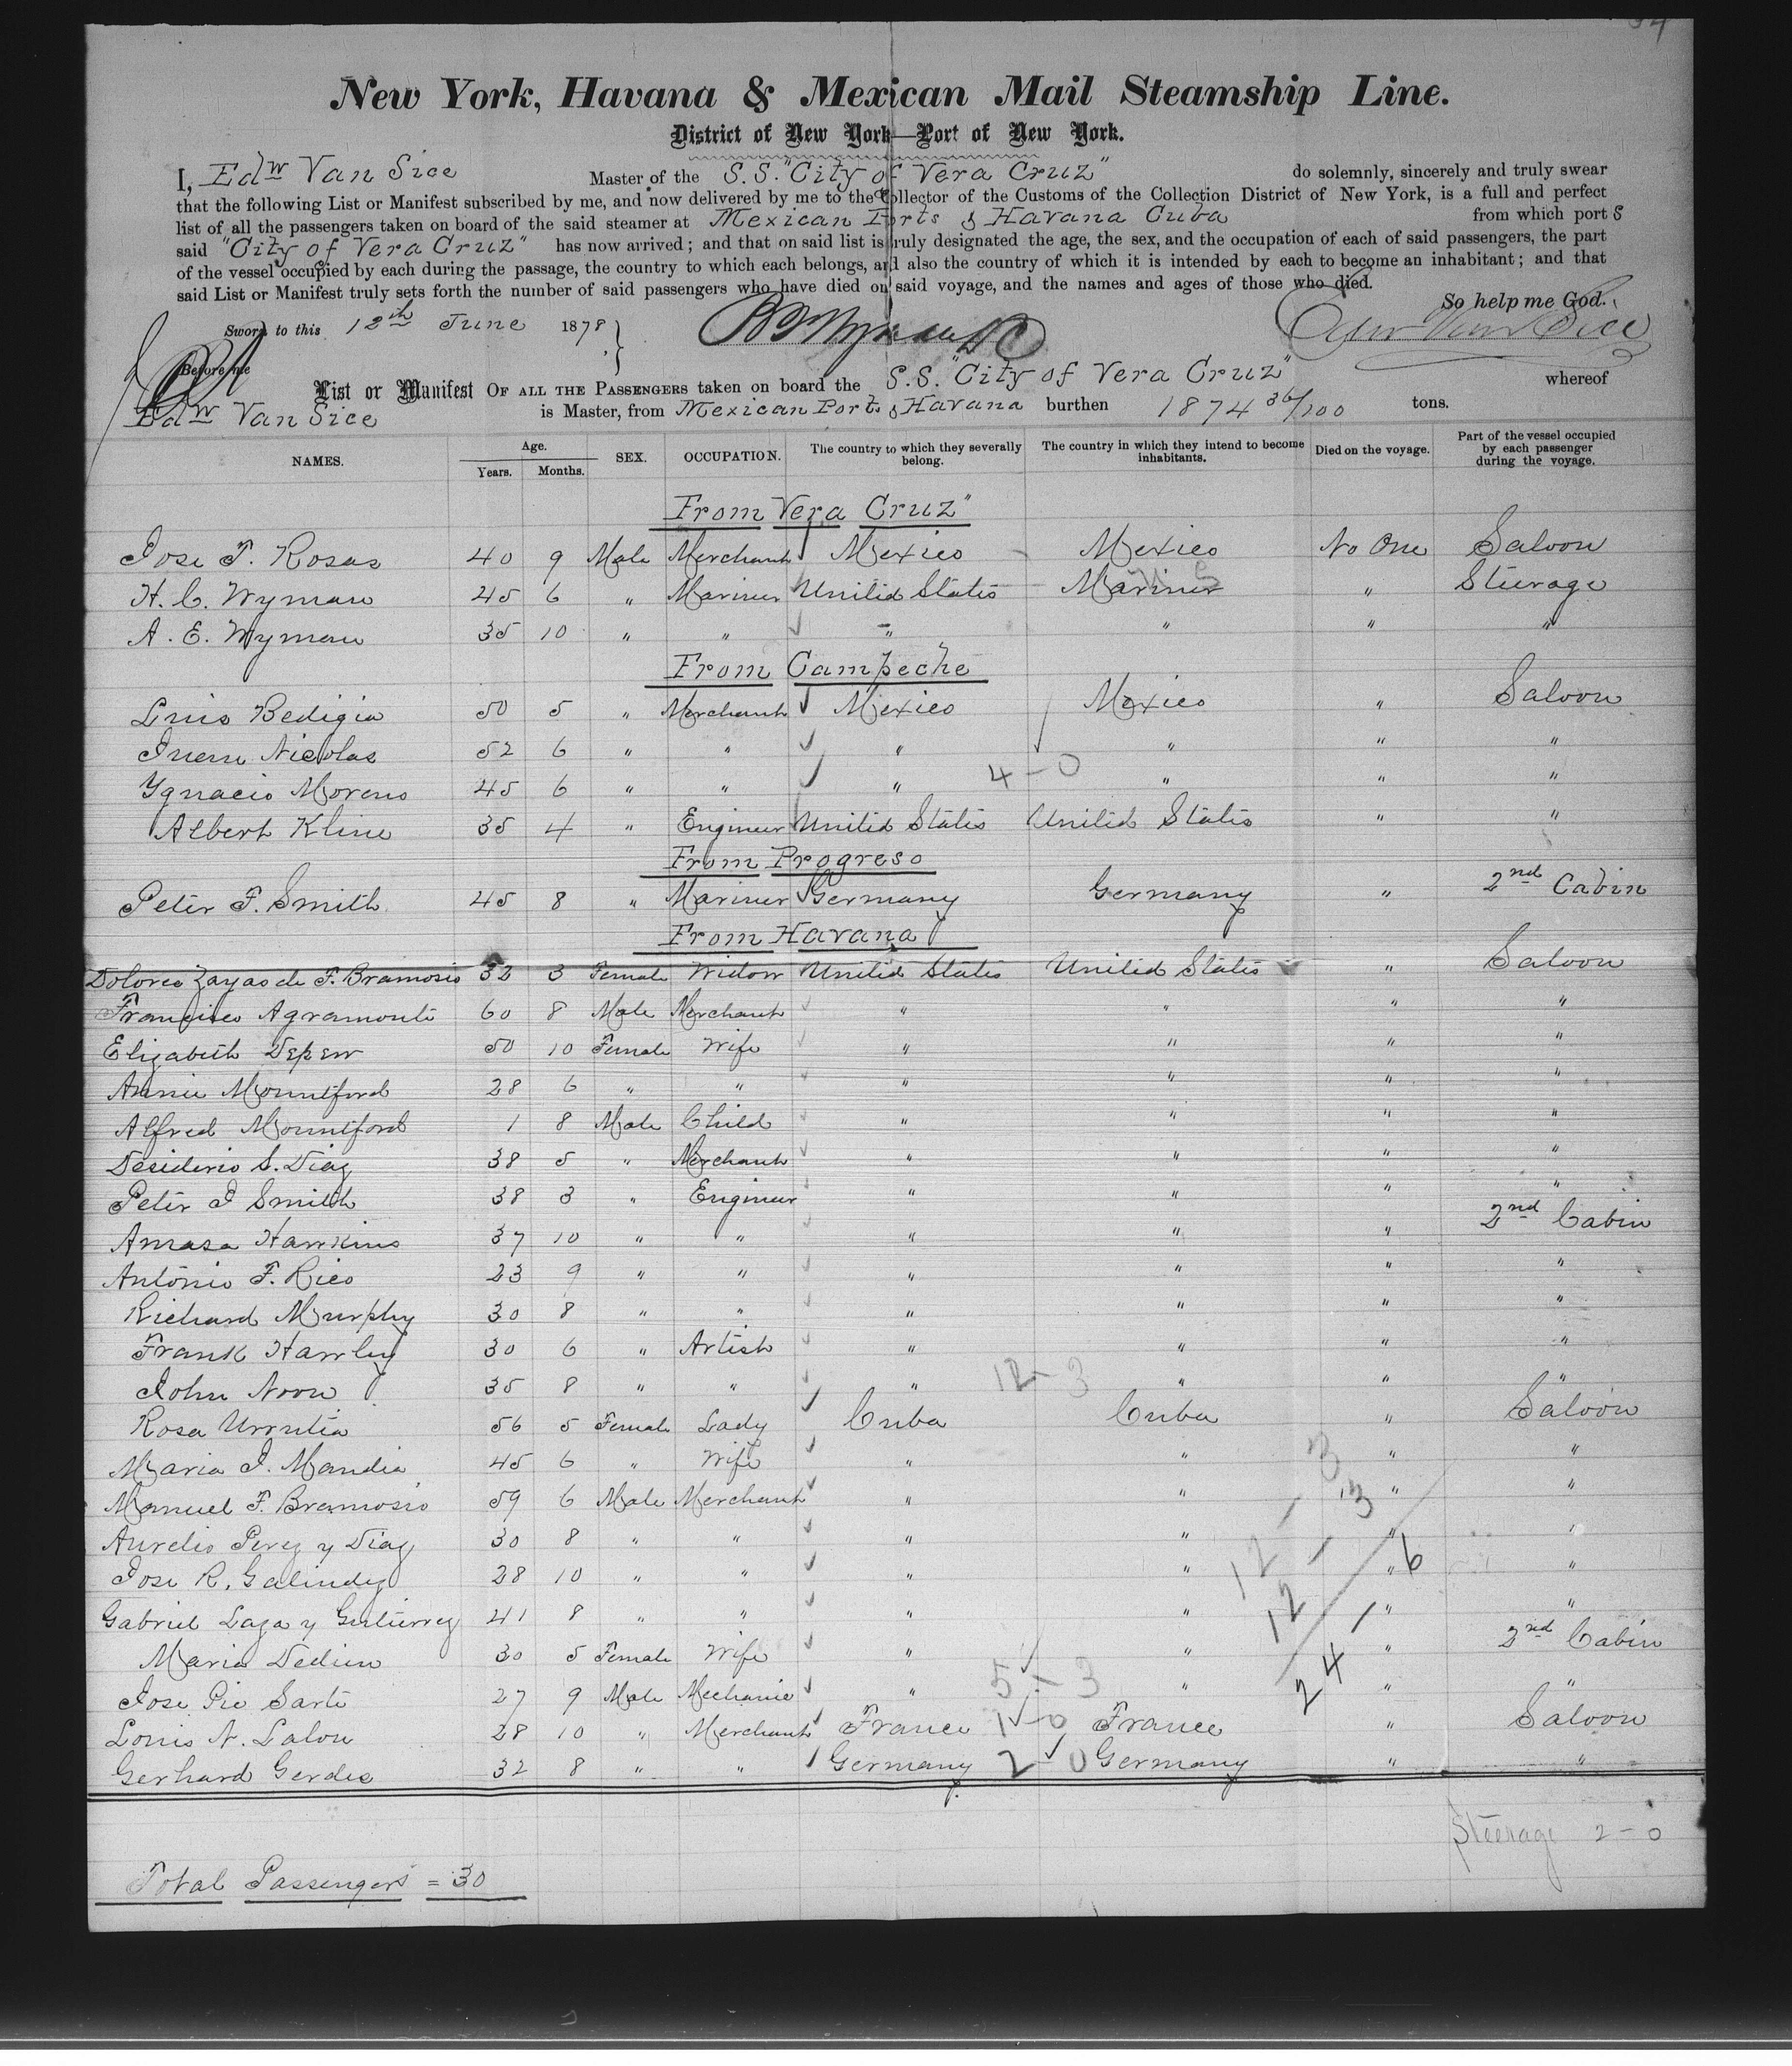 New York, Havana & Mexican Mail Steamship Line.
District of New York—Port of New York.
I, Edw Van Sice Master of the S.S. "City of Vera Cruz" do solemnly, sincerely and truly swear
that the following List or Manifest subscribed by me, and now delivered by me to the Collector of the Customs of the Collection District of New York, is a full and perfect
list of all the passengers taken on board of the said steamer at Mexican Ports & Havana Cuba from which port s
said "City of Vera Cruz" has now arrived; and that on said list is truly designated the age, the sex, and the occupation of each of said passengers, the part
of the vessel occupied by each during the passage, the country to which each belongs, and also the country of which it is intended by each to become an inhabitant; and that
said List or Manifest truly sets forth the number of said passengers who have died on said voyage, and the names and ages of those who died.
So help me God.
Sworn to this 12th June 1878
Edw Van Sice
Before me
List or Manifest OF ALL THE PASSENGERS taken on board the S.S. "City of Vera Cruz" whereof
Edw Van Sice is Master, from Mexican Ports & Havana burthen 1874 36/100 tons.
NAMES. Age. Years. Months. SEX. OCCUPATION. The country to which they severally belong. The country in which they intend to become inhabitants. Died on the voyage. Part of the vessel occupied by each passenger during the voyage.
From Vera Cruz"
Jose T. Rosas 40 9 Male Merchant Mexico Mexico No One Saloon
H. C. Wyman 45 6 " Mariner United States Mariner " Steerage
A. E. Wyman 35 10 " " " " " "
From Campeche
Luis Bedigia 50 5 " Merchant Mexico Mexico " Saloon
Juan Nicolas 52 6 " " " " " "
Ygnacio Moreno 45 6 " " " 4-0 " " "
Albert Kline 35 4 " Engineer United States United States " "
From Progreso
Peter F. Smith 45 8 " Mariner Germany Germany " 2nd Cabin
From Havana
Dolores Zayas de F. Bramosio 32 3 Female Widow United States United States " Saloon
Francisco Agramonte 60 8 Male Merchant " " " "
Elizabeth Depew 50 10 Female Wife " " " "
Annie Mountford 28 6 " " " " " "
Alfred Mountford 1 8 Male Child " " " "
Desiderio S. Diaz 38 5 " Merchant " " " "
Peter J Smith 38 3 " Engineer " " " "
Amasa Hawkins 37 10 " " " " " 2nd Cabin
Antonio F. Rico 23 9 " " " " " "
Richard Murphy 30 8 " " " " " "
Frank Hawley 30 6 " Artist " " " "
John Noon 35 8 " " " 12-3 " " "
Rosa Urrutia 56 5 Female Lady Cuba Cuba " Saloon
Maria J. Mandia 45 6 " Wife " " " "
Manuel F. Bramosio 59 6 Male Merchant " " " "
Aurelio Perez y Diaz 30 8 " " " " " "
Jose R. Galindez 28 10 " " " " " "
Gabriel Laza y Gutierrez 41 8 " " " " " "
Maria Dedieu 30 5 Female Wife " " " 2nd Cabin
Jose Pie Sarte 27 9 Male Mechanic " 5-3 " " "
Louis N. Lalou 28 10 " Merchant France 1-0 France " Saloon
Gerhard Gerdes 32 8 " " Germany 2-0 Germany " "
12 - 3
12 - 3
24 - 6
Steerage 2-0
Total Passengers = 30